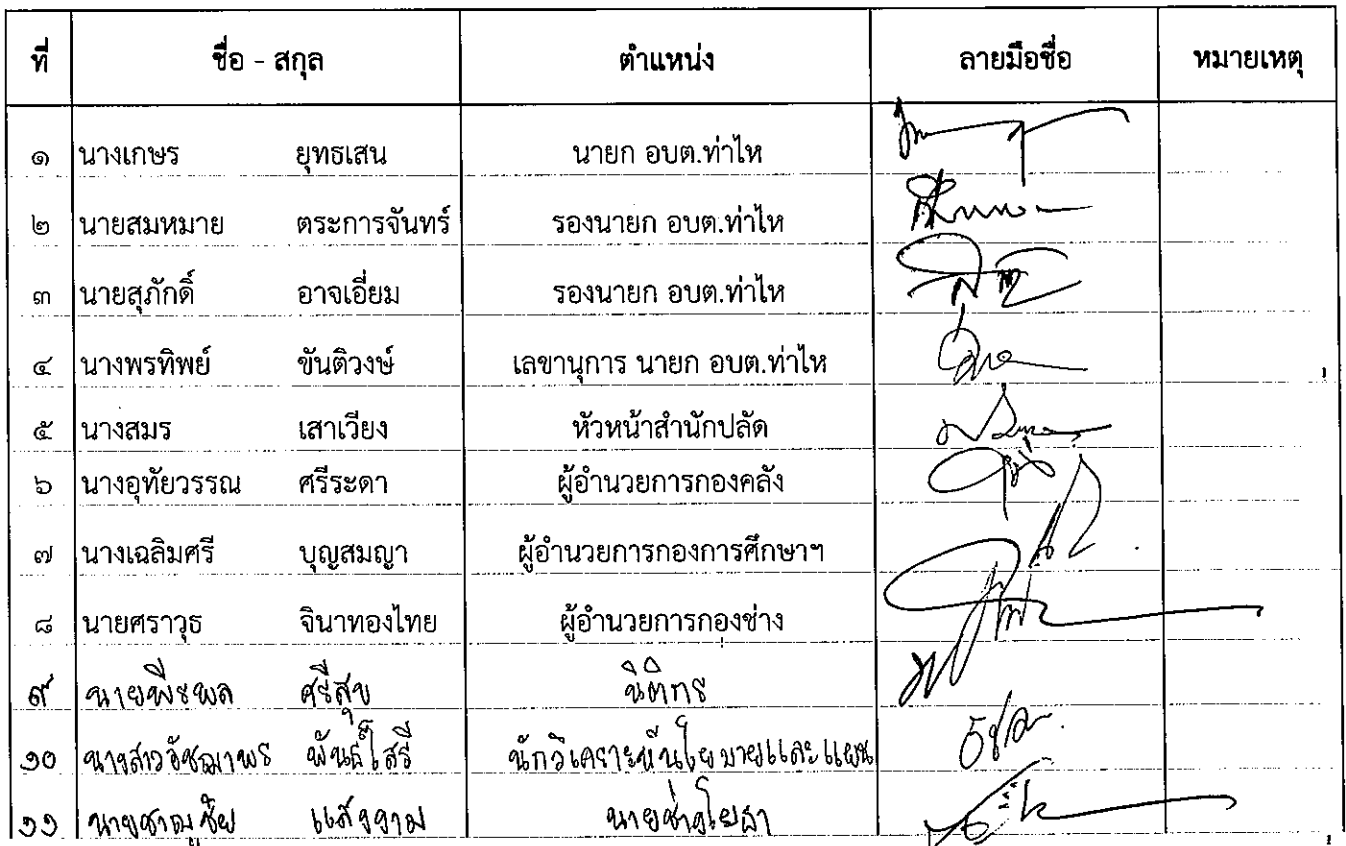 ที่ ชื่อ - สกุล ตำแหน่ง ลายมือชื่อ หมายเหตุ
๑ นางเกษร ยุทธเสน นายก อบต.ท่าไห
๒ นายสมหมาย ตระการจันทร์ รองนายก อบต.ท่าไห
๓ นายสุภักดิ์ อาจเอี่ยม รองนายก อบต.ท่าไห
๔ นางพรทิพย์ ขันติวงษ์ เลขานุการ นายก อบต.ท่าไห
๕ นางสมร เสาเวียง หัวหน้าสำนักปลัด
๖ นางอุทัยวรรณ ศรีระดา ผู้อำนวยการกองคลัง
๗ นางเฉลิมศรี บุญสมญา ผู้อำนวยการกองการศึกษาฯ
๘ นายศราวุธ จินาทองไทย ผู้อำนวยการกองช่าง
๙ นายพีรพล ศรีสุข นิติกร
๑๐ นางสาวอัชฌาพร พันธ์โสรี นักวิเคราะห์นโยบายและแผน
๑๑ นายชาญชัย แสงงาม นายช่างโยธา